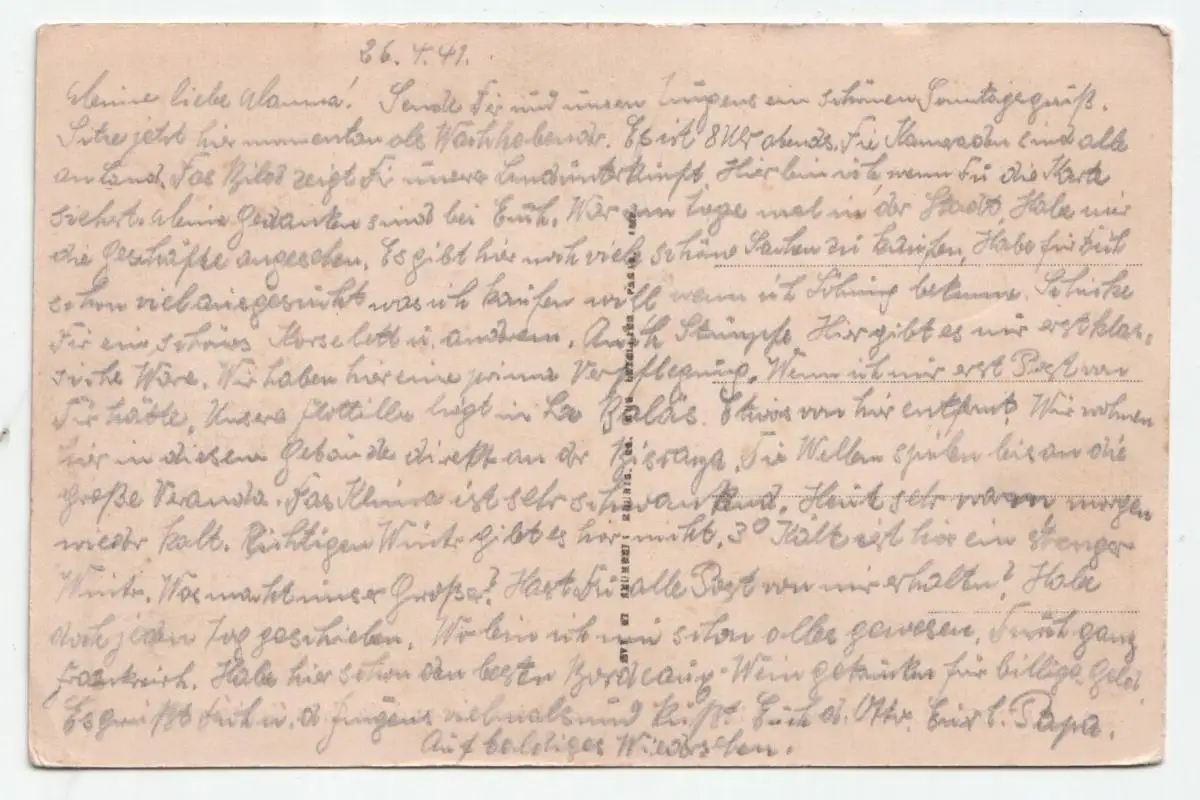 26. 4. 41.
Meine liebe Mama! Sende Dir und unsern Jungens ein schönen Sonntagsgruß.
Sitze jetzt hier momentan als Wachhabender. Es ist 8 Uhr abends. Die Kameraden sind alle
an Land. Das Bild zeigt Dir unsere Landunterkunft. Hier bin ich, wenn Du die Karte
siehst. Meine Gedanken sind bei Euch. War am Tage mal in der Stadt. Habe mir
die Geschäfte angesehen. Es gibt hier noch viele schöne Sachen zu kaufen. Habe für Dich
schon viel ausgesucht was ich kaufen will wenn ich Löhnung bekomme. Schicke
Dir ein schönes Korselett u. anderem. Auch Stümpfe. Hier gibt es nur erstklas-
siche Ware. Wir haben hier eine prima Verpflegung. Wenn ich nur erst Post von
Dir hätte. Unsere Flottille liegt in La Balas. Etwas von hier entfernt. Wir wohnen
hier in diesem Gebäude direkt an der Bisraya. Die Wellen spielen bis an die
große Veranda. Das Klima ist sehr schwankend. Heut sehr warm morgen
wieder kalt. Richtigen Winter gibt es hier nicht. 3° Kält ist hier ein strenger
Winter. Was macht unser Großer? Hast Du alle Post von mir erhalten? Habe
doch jeden Tag geschieben. Wo bin ich nun schon alles gewesen. Durch ganz
Frankreich. Habe hier schon den besten Bordeaux-Wein getrunken für billiges Geld.
Es grüßt Dich u. d. Jungens vielmals und küßt Euch d. Otto. Eur l. Papa.
Auf baldiges Wiedersehen.